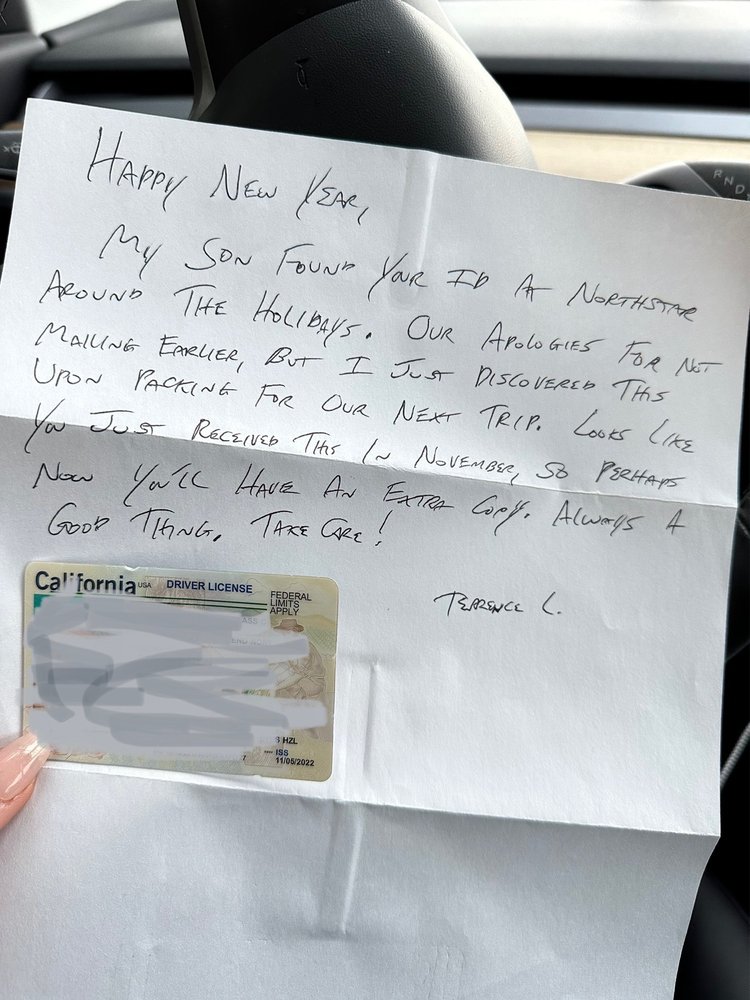 Happy New Year,
My Son Found Your ID A Northstar
Around The Holidays. Our Apologies For Not
Mailing Earlier, But I Just Discovered This
Upon Packing For Our Next Trip. Looks Like
You Just Received This In November, So Perhaps
Now You'll Have An Extra Copy. Always A
Good Thing. Take Care!
Terrence C.
California USA DRIVER LICENSE
FEDERAL
LIMITS
APPLY
HZL
ISS
11/05/2022
RND